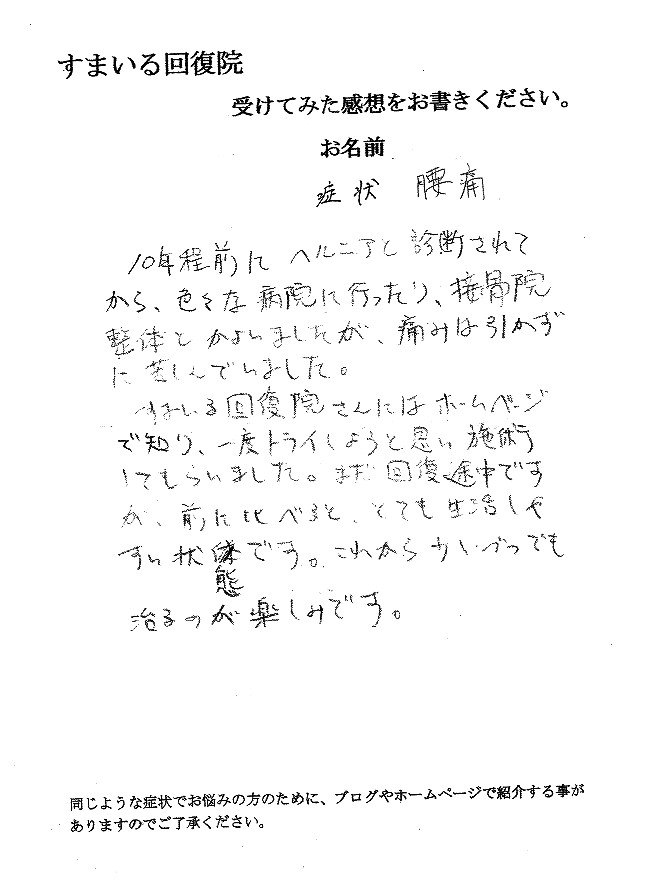 すまいる回復院
受けてみた感想をお書きください。
お名前
症状 腰痛
10年程前に ヘルニアと診断されて
から、色々な病院に行ったり、接骨院
整体とかよいましたが、痛みは引かず
に苦しんでいました。
すまいる回復院さんにはホームページ
で知り、一度トライしようと思い施術
してもらいました。まだ回復途中です
が、前に比べると、とても生活しや
すい状態です。これから少しづつでも
治るのが楽しみです。
同じような症状でお悩みの方のために、ブログやホームページで紹介する事が
ありますのでご了承ください。